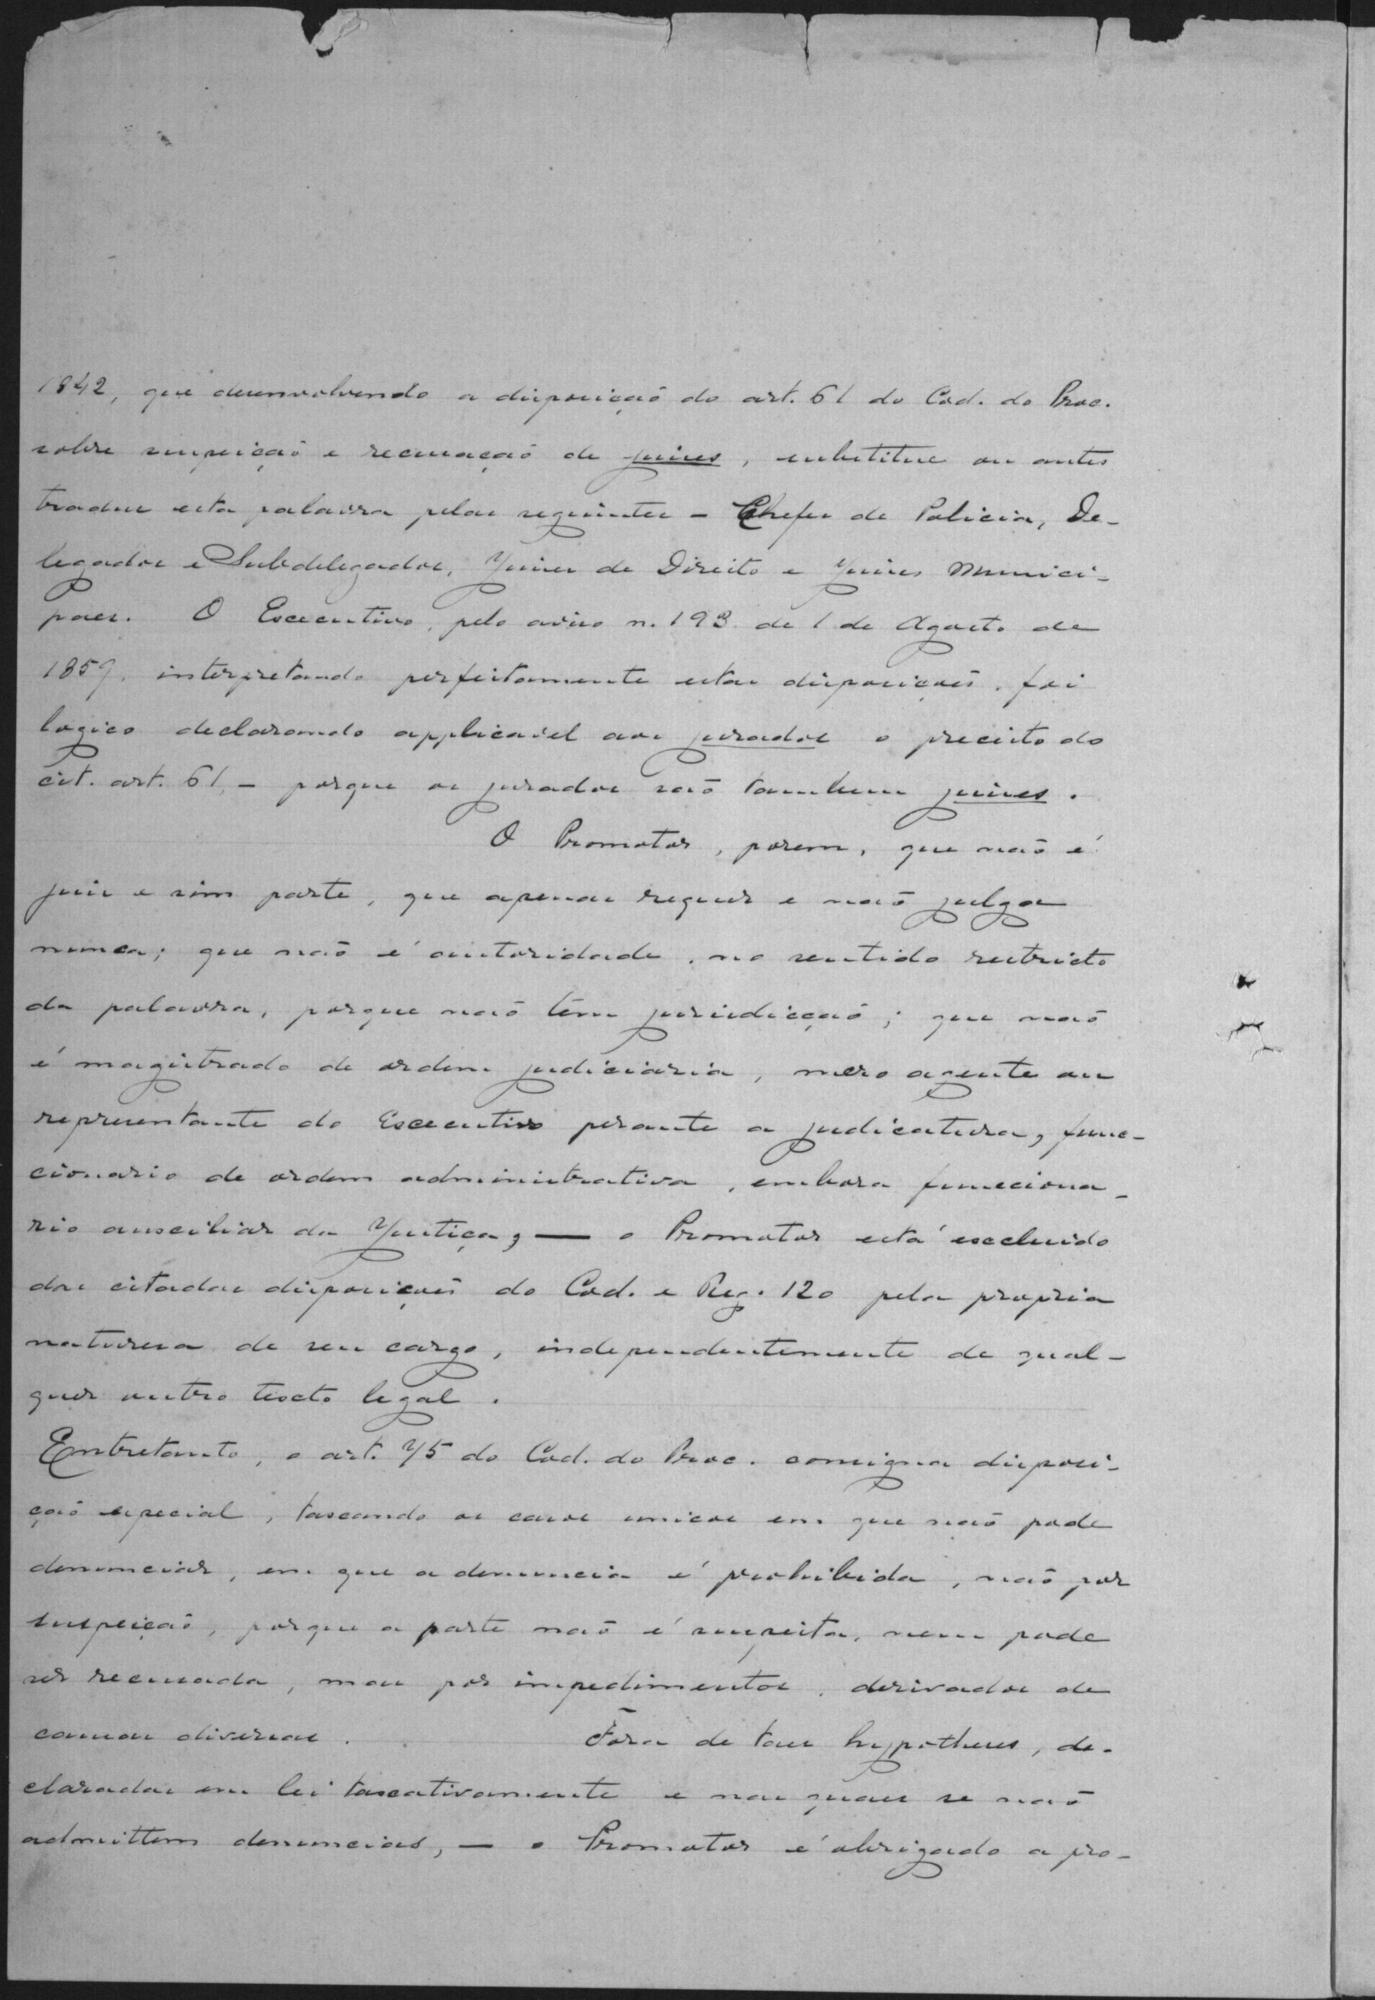 1842, que desenvolvendo a disposição do art. 61 do Cod. do Proc.
sobre suspeição e recusação de juizes, substitue ou antes
traduz esta palavra pelas seguintes – Chefes de Policia, De-
legados e Subdelegados, Juizes de Direito e Juizes Munici-
paes. O Executivo, pelo aviso n. 193 de 1 de Agosto de
1859, interpretando perfeitamente estas disposições, foi
logico declarando applicavel aos jurados o preceito do
cit. art. 61, – porque os jurados são tambem juizes.
O Promotor, porem, que não é
juiz e sim parte, que apenas requer e não julga
nunca; que não é autoridade, no sentido restricto
da palavra, porque não tem jurisdicção; que não
é magistrado de ordem judiciaria, mero agente ou
representante do Executivo perante a judicatura, func-
cionario de ordem administrativa, embora funcciona-
rio auxiliar da Justiça, — o Promotor está excluido
das citadas disposições do Cod. e Reg. 120 pela propria
natureza de seu cargo, independentemente de qual-
quer outro texto legal.
Entretanto, o art. 75 do Cod. do Proc. consigna disposi-
ção especial, taxando os casos unicos em que não pode
denunciar, em que a denuncia é prohibida, não por
suspeição, porque a parte não é suspeita, nem pode
ser recusada, mas por impedimentos, derivados de
causas diversas. Fora de taes hypotheses, de-
claradas em lei taxativamente e nas quaes se não
admittem denuncias, — o Promotor é obrigado a pro-